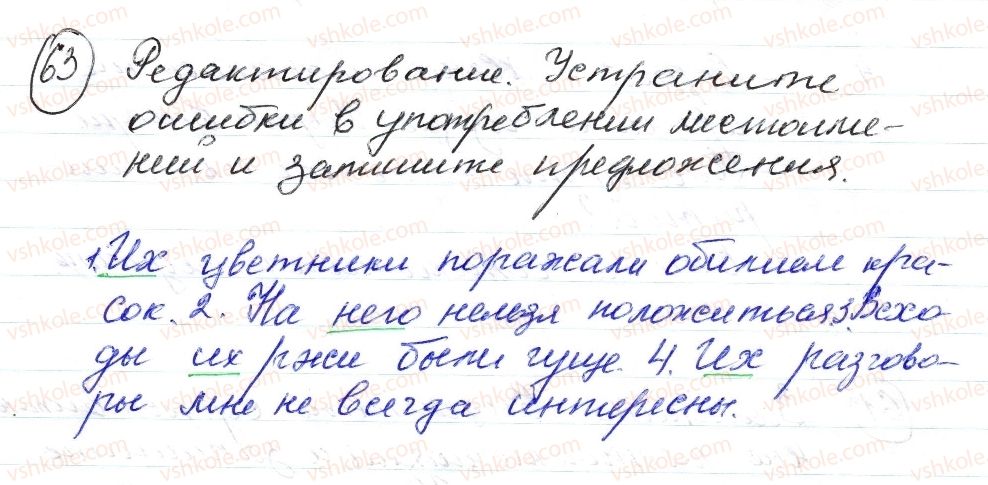 63 Редактирование. Устраните
ошибки в употреблении местоиме-
ний и запишите предложения.
1. Их цветники поражали обилием кра-
сок. 2. На него нельзя положиться 3. Всхо-
ды их ржи были гуще. 4. Их разгово-
ры мне не всегда интересны.